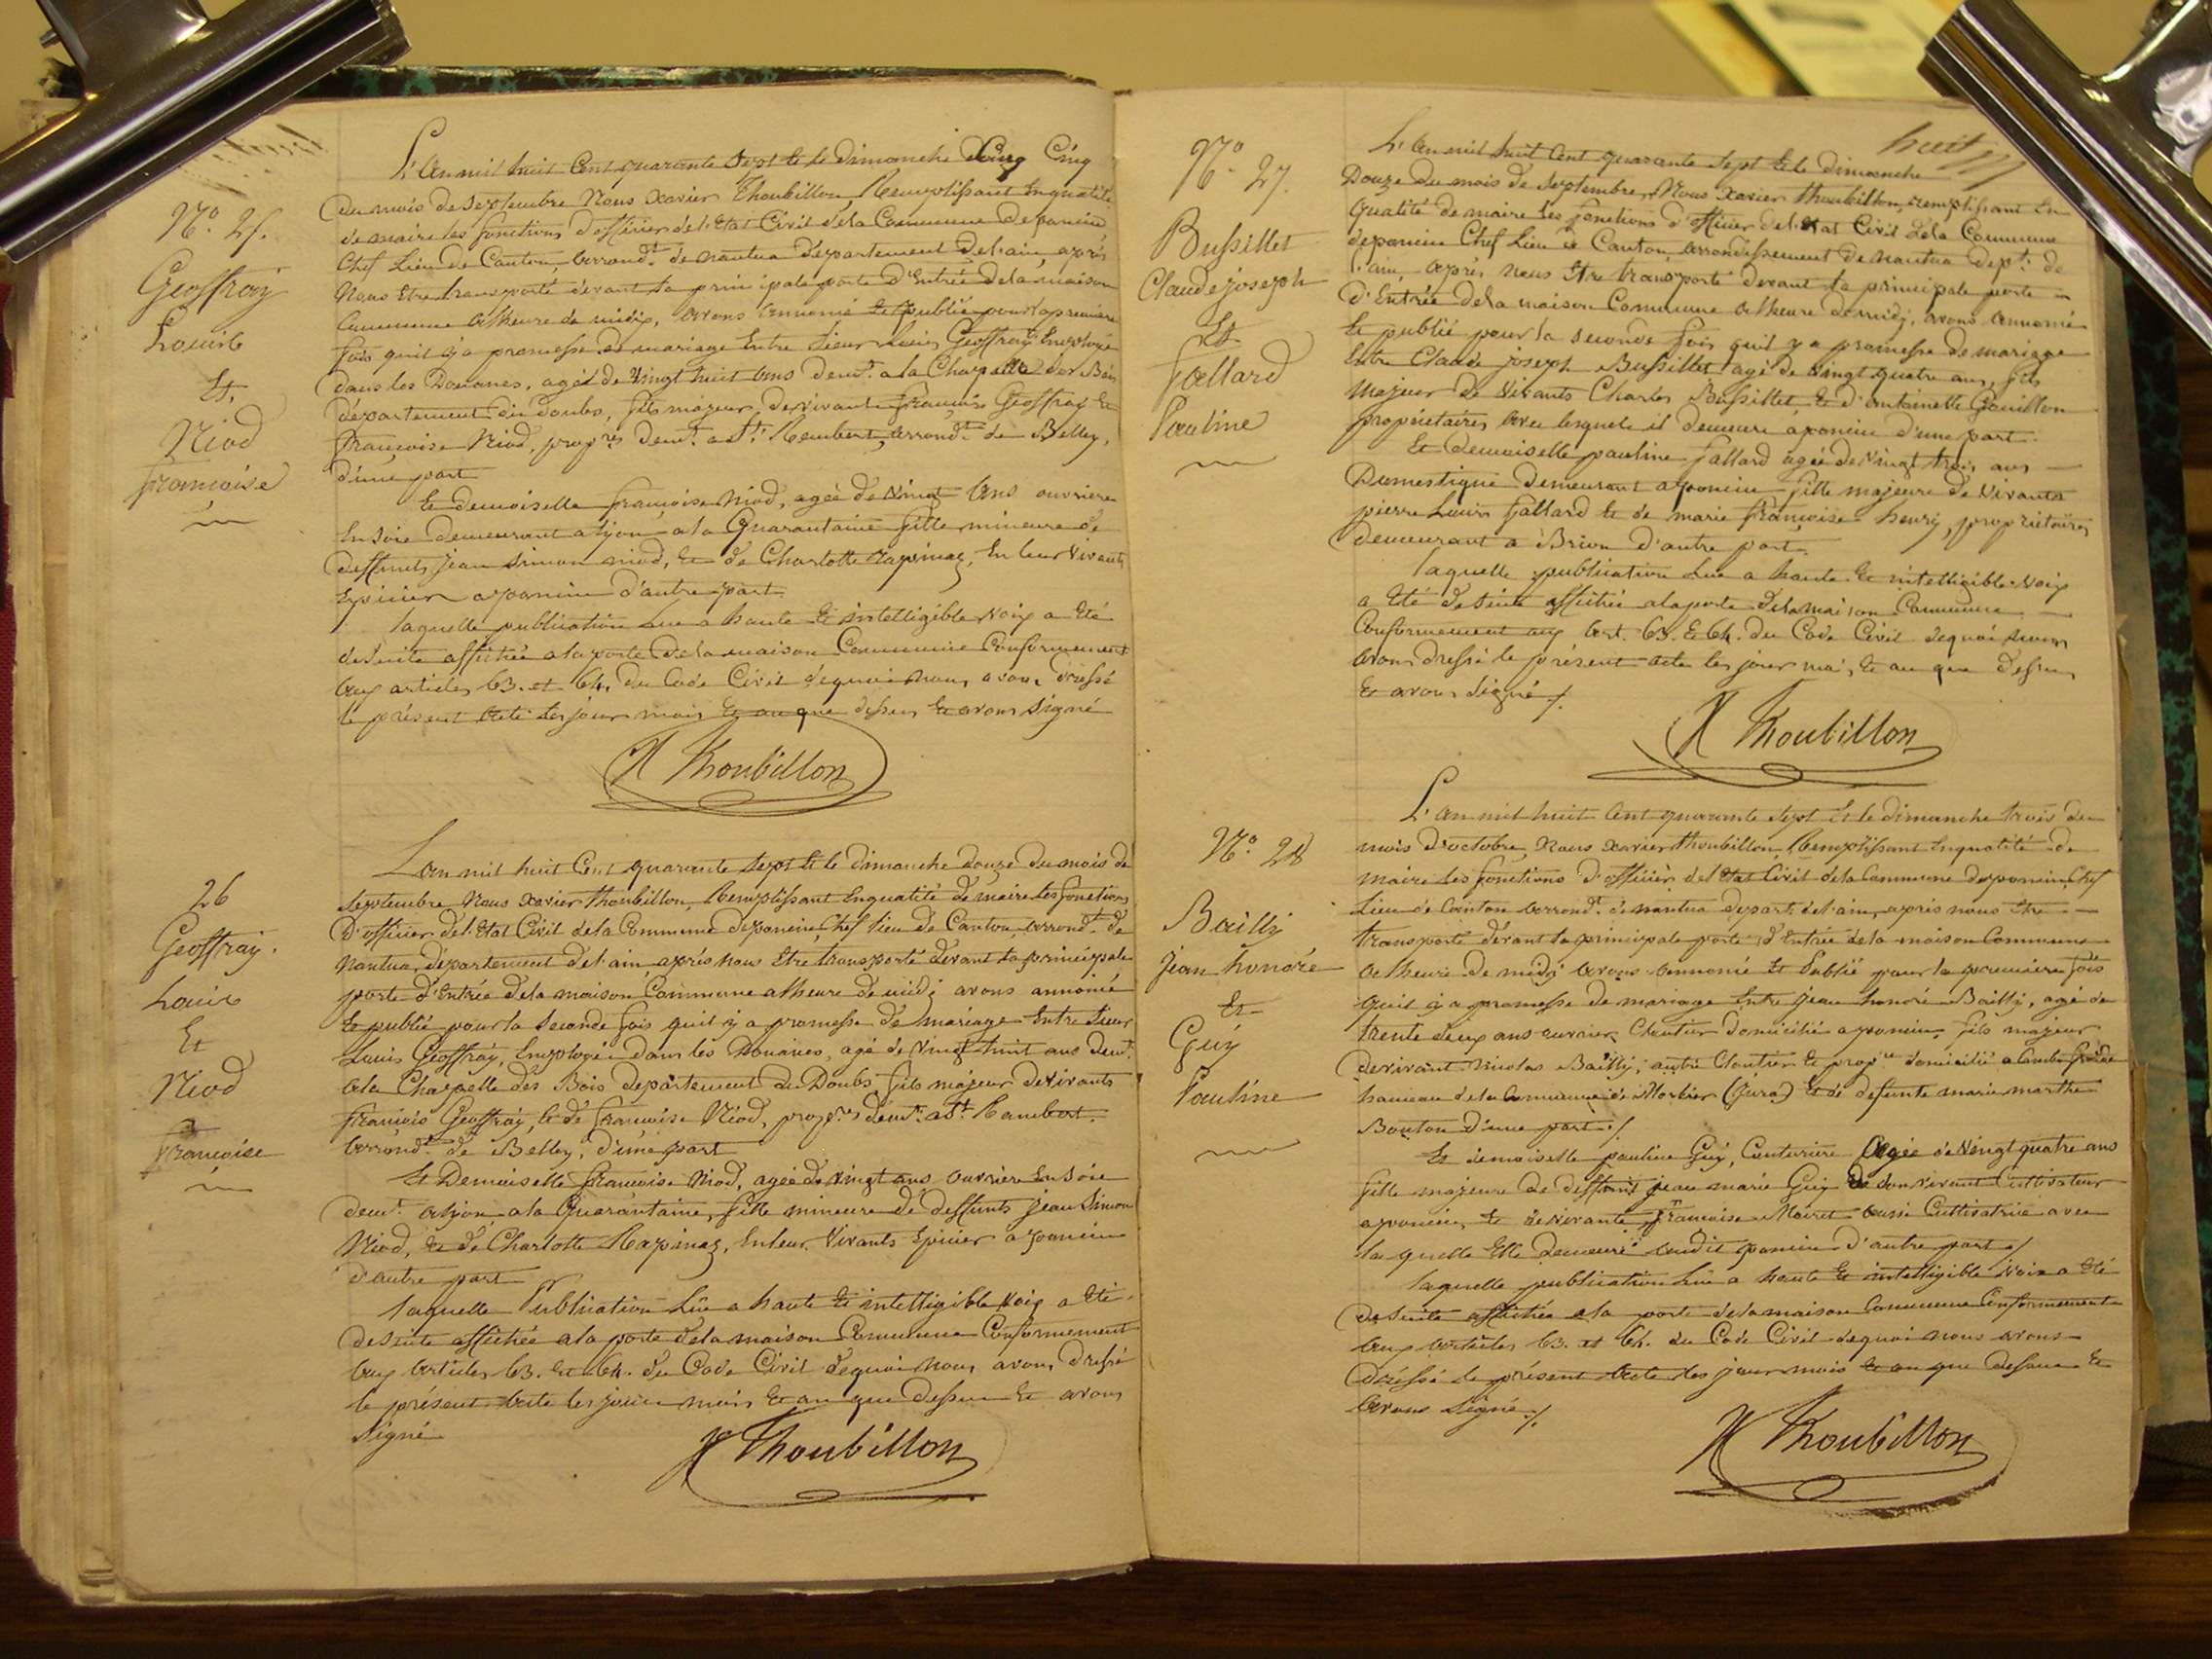 N.o 25.
Geoffray
Louis
Et
Niod
françoise
L'an mil huit Cent quarante Sept Et le dimanche Cinq
du mois de Septembre Nous Xavier Thoubillon Remplissant En qualité
de maire les fonctions d'officier de l'Etat Civil de la Commune de poncin
Chef Lieu de Canton, arrond.t de nantua département de l'ain, après
Nous Etre transporté devant la principale porte d'Entrée de la maison
Commune à l'heure de midi, avons annoncé Et publié pour la première
fois qu'il y a promesse de mariage Entre Sieur Louis Geoffray Employé
dans les Douanes, agé de vingt huit ans dem.t a la Chapelle des Bois
département du doubs, fils majeur de vivants françois Geoffray Et
françoise Niod, prop.res dem.t a S.t Rembert, arrond.t de Belley,
d'une part
Et demoiselle françoise Niod, agée de vingt ans ouvrière
En Soie demeurant a lyon a la Quarantaine fille mineure de
deffunts jean Simon niod, Et de Charlotte Rapinaz, En leur vivants
Epicier a poncin d'autre part.
laquelle publication Lue a haute Et intelligible voix a Eté
de Suite affichée a la porte de la maison Commune Conformement
aux articles 63. et 64. du Code Civil de quoi nous avons dressé
le présent acte les jour mois Et an que dessus Et avons signé
X Thoubillon
26
Geoffray.
Louis
Et
Niod
françoise
L'an mil huit Cent quarante Sept Et le dimanche douze du mois de
Septembre Nous Xavier Thoubillon, Remplissant En qualité de maire les fonctions
D'officier de l'Etat Civil de la Commune de poncin, Chef lieu de Canton, arrond.t de
Nantua, département de l'ain, après nous Etre transporté devant la principale
porte d'Entrée de la maison Commune a l'heure de midi avons annoncé
Et publié pour la Seconde fois qu'il y a promesse de mariage Entre Sieur
Louis Geoffray, Employé dans les Douanes, agé de vingt huit ans dem.t
a la Chapelle des Bois département du Doubs, fils majeur de vivants
françois Geoffray, Et de françoise Niod, prop.res dem.t a S.t Rambert.
arrond.t de Belley, d'une part
Et Demoiselle françoise Niod, agée de vingt ans ouvrière En Soie
dem.t a lyon a la Quarantaine, fille mineure de deffunts jean Simon
Niod, Et de Charlotte Rapinaz, En leur vivants Epicier a poncin
d'autre part
laquelle Publication Lue a haute Et intelligible voix a Eté
de Suite affichée a la porte de la maison Commune Conformement
aux articles 63. Et 64. du Code Civil de quoi nous avons dressé
le présent acte les jour mois Et an que dessus Et avons
signé
X Thoubillon
huit
N.o 27.
Bussillet
Claude joseph
Et
fallard
Pauline
L'an mil huit Cent quarante Sept Et le dimanche
Douze du mois de Septembre, Nous Xavier thoubillon, remplissant En
qualité de maire les fonctions d'officier de l'Etat Civil de la Commune
de poncin Chef Lieu de Canton, arrondissement de nantua dep.t de
l'ain, après nous Etre transporté devant la principale porte
D'Entrée de la maison Commune a l'heure de midi, avons annoncé
Et publié pour la Seconde fois qu'il y a promesse de mariage
Entre Claude joseph Bussillet agé de vingt quatre ans, fils
majeur de vivants Charles Bussillet, Et d'antoinette Gouillon
propriétaires avec lesquels il demeure a poncin d'une part.
Et demoiselle pauline fallard agée de vingt trois ans
Domestique demeurant a poncin fille majeure de vivants
pierre Louis fallard Et de marie françoise henry, propriétaires
demeurant a Brion d'autre part.
laquelle publication Lue a haute Et intelligible voix
a Eté de Suite affichée a la porte de la maison Commune
Conformement aux art. 63. & 64. du Code Civil de quoi nous
avons dressé le présent acte les jour mois Et an que dessus
Et avons signé /.
X Thoubillon
N.o 28
Bailly
jean honoré
Et
Guy
Pauline
L'an mil huit Cent quarante Sept Et le dimanche trois du
mois D'octobre, Nous Xavier thoubillon, Remplissant En qualité de
maire les fonctions D'officier de l'Etat Civil de la Commune de poncin, Chef
Lieu de Canton arrond.t de nantua depart. de l'ain, après nous Etre
transporté devant la principale porte d'Entrée de la maison Commune
a l'heure de midi avons annoncé Et Publié pour la première fois
qu'il y a promesse de mariage Entre jean honoré Bailly, agé de
trente deux ans ouvrier Cloutier domicilié a poncin, fils majeur
de vivant Nicolas Bailly, aussi Cloutier Et prop.re domicilié a Combe froide
hameau de la Commune de Morbier (Jura) Et de defunte marie marthe
Bouton d'une part /.
Et demoiselle pauline Guy, Couturière agée de vingt quatre ans
fille majeure de deffunt jean marie Guy de son vivant Cultivateur
a poncin, Et de vivante françoise Moiret aussi Cultivatrice avec
laquelle Elle demeure audit poncin d'autre part /
laquelle publication Lue a haute Et intelligible voix a Eté
de Suite affichée a la porte de la maison Commune Conformement
aux articles 63. et 64. du Code Civil de quoi nous avons
dressé le présent acte les jour mois Et an que dessus Et
avons signé /.
X Thoubillon